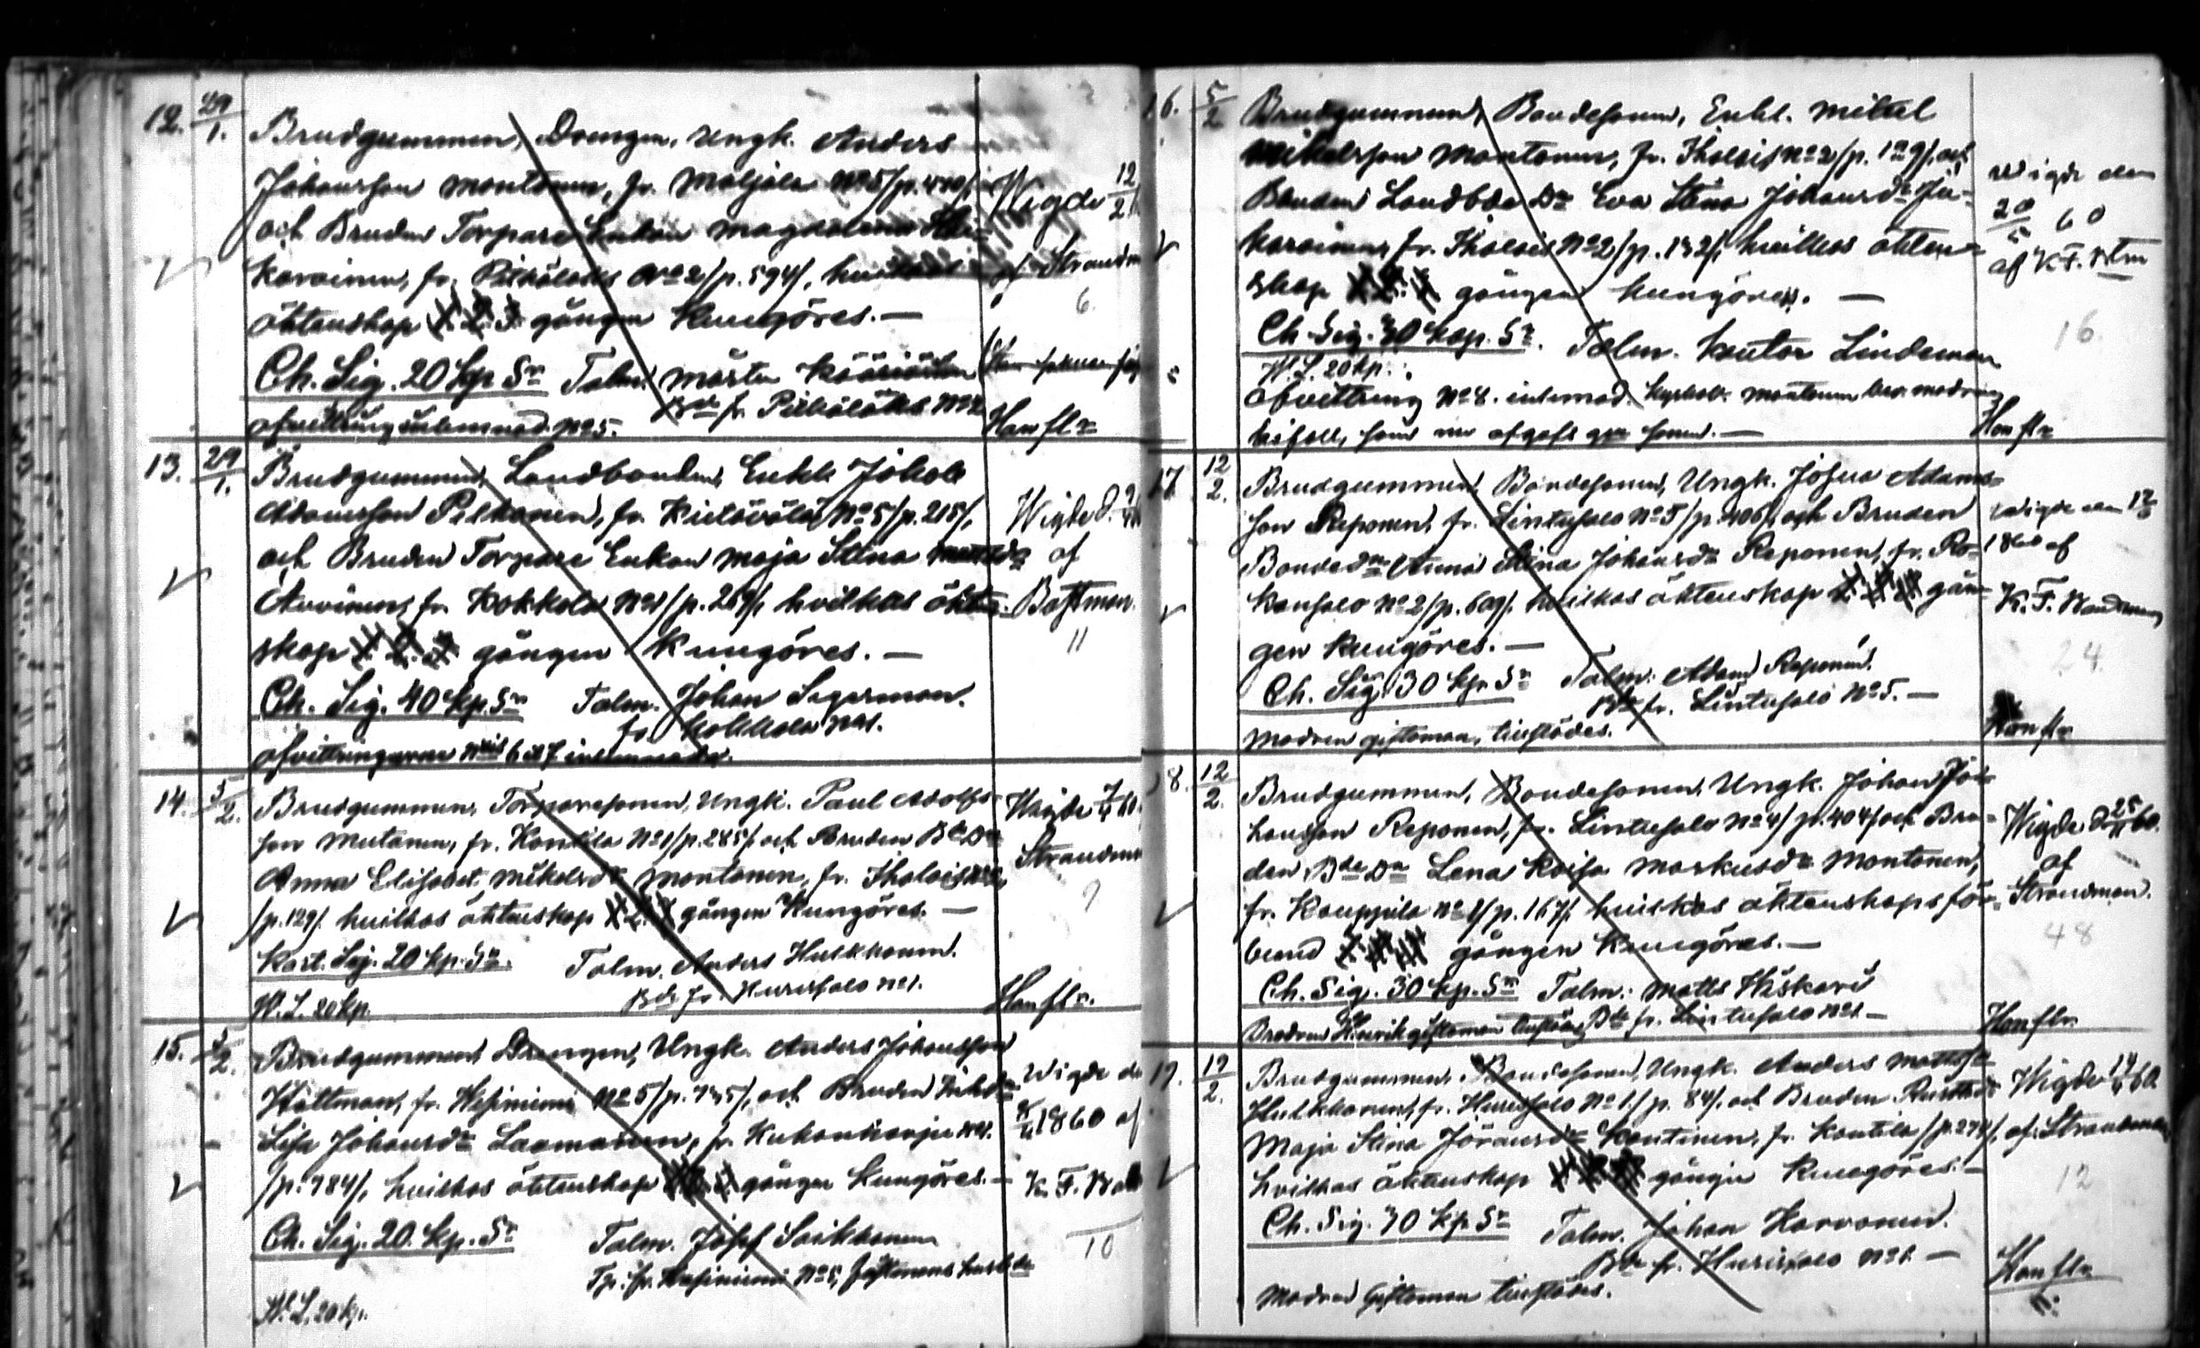 12. 29/1. Brudgummen, Drengen, Ungk. Anders
Johansson Montonen, fr. Maljala No 5
och Bruden Torpare Enkan Magdalena
Karoinen, fr. No 2/p. 594/, hvilkas
äktenskap 1. 2. 3. gången kungöres. —
Ch. Sig. 20 kp Sr Talm. Mårten
Bde fr. No 2
afvittring inlemnad No 5.
Wigde 12/2
af Strandm
6.
Han fl.
13. 29/1. Brudgummen, Landbonden, Enkl. Jakob
Adamsson Pelkonen, fr. No 5/p. 215/,
och Bruden Torpare Enkan Maja Stina
Arvinen, fr. Kokkola No 1/p. 269/, hvilkas äkten-
skap gången kungöres. —
Ch. Sig. 40 kp. Sr Talm. Johan Segerman.
fr. Kokkola No 1.
afvittringarne No 6 & 7 inlemnade.
Wigde d.
af
Boftman.
11
14. 5/2. Brudgummen, Torparesonen, Ungk. Paul Adolfs-
son Mutanen, fr. Kontila No 1/p. 285/, och Bruden Bde Dr
Anna Elisabet Mikelsdr Montonen, fr. Tholois
/p. 129/, hvilkas äktenskap gången kungöres. —
Kart. Sig. 20 kp. Sr. Talm. Anders Hulkkonen.
Bde fr. Hurissalo No 1.
W. L. 20 kp.
Wigde 60.
Strandm
7
Han fl.
15. 5/2. Brudgummen Drengen, Ungk. Anders Johansson
Hättman, fr. No 5/p. 735/, och Bruden
Lisa Johansdr Laamanen, fr. Kukonharju No 1.
/p. 784/, hvilkas äktenskap gången kungöres. —
Ch. Sig. 20. kp. Sr Talm. Josef Saikkonen
Tp. fr. No 5,
W. L. 20 kp.
Wigde d
1860 af
K. F.
10
16. 5/2 Brudgummen, Bondesonen, Enkl. Mikel
Mikelsson Montonen, fr. Tholois No 2/p. 129/, och
Bruden Landbde Dr Eva Stina Johansdr
fr. Tholois No 2/p. 132/, hvilkas äkten-
skap gången kungöres. —
Ch. Sig. 30 kop. Sr. Talm. Kantor Lindeman
W. L. 20 kp.
afvittring No 8. inlemnad.
bifall, som —
Wigde den
20/5 60
af K. F.
16.
Han fl.
17. 12/2. Brudgummen, Bondesonen, Ungk. Josua Adams-
son Reponen, fr. Lintusalo No 5/p. 406/, och Bruden
Bonde Dr Anna Stina Johansdr Reponen, fr. Ro-
konsalo No 2/p. 609/, hvilkas äktenskap gån-
gen kungöres. —
Ch. Sig. 30 kp. Sr Talm: Adam Reponen.
Bde fr. Lintusalo No 5. —
Modren giftoman, tillstädes.
Wigde den
1860 af
K. F.
24.
Han fl.
18. 12/2. Brudgummen, Bondesonen, Ungk. Johan Jo-
hansson Reponen, fr. Lintusalo No 4/p. 404/ och Bru-
den Bde Dr Lena Kaisa Markusdr Montonen,
fr. Kauppila No 2/p. 167/, hvilkas äktenskapsför-
bund gången kungöres. —
Ch. Sig. 30 kp. Sr Talm: Matts Hiskari
Brodren Henrik giftoman tillstädes, Bde fr. Lintusalo No 1. —
Wigde d. 60.
af
Strandman.
48
Han fl.
19. 12/2. Brudgummen, Bondesonen, Ungk. Anders Mattss.
Hulkkonen, fr. Hurissalo No 1./p. 84/, och Bruden
Maja Stina Göransdr Kontinen, fr. Kontila /p. 274/,
hvilkas äktenskap gången kungöres. —
Ch. Sig. 30 kp Sr Talm. Johan Karvonen.
Bde fr. Hurissalo No 1. —
Modren Giftoman tillstädes.
Wigde 60.
af Strandman
12
Han fl.